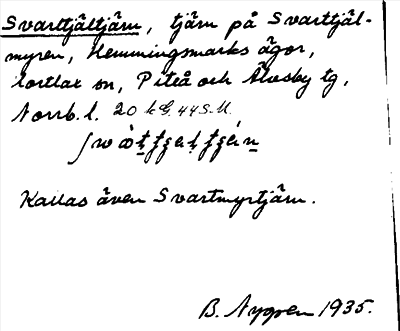 Svarttjältjärn, tjärn på Svarttjäl-
myren, Hemmingsmarks ägor,
Hortlax sn, Piteå och Älvsby tg,
Norrb. l. 20 k G. 44 S.U.
Kallas även Svartmyrtjärn.
B. Nygren 1935.